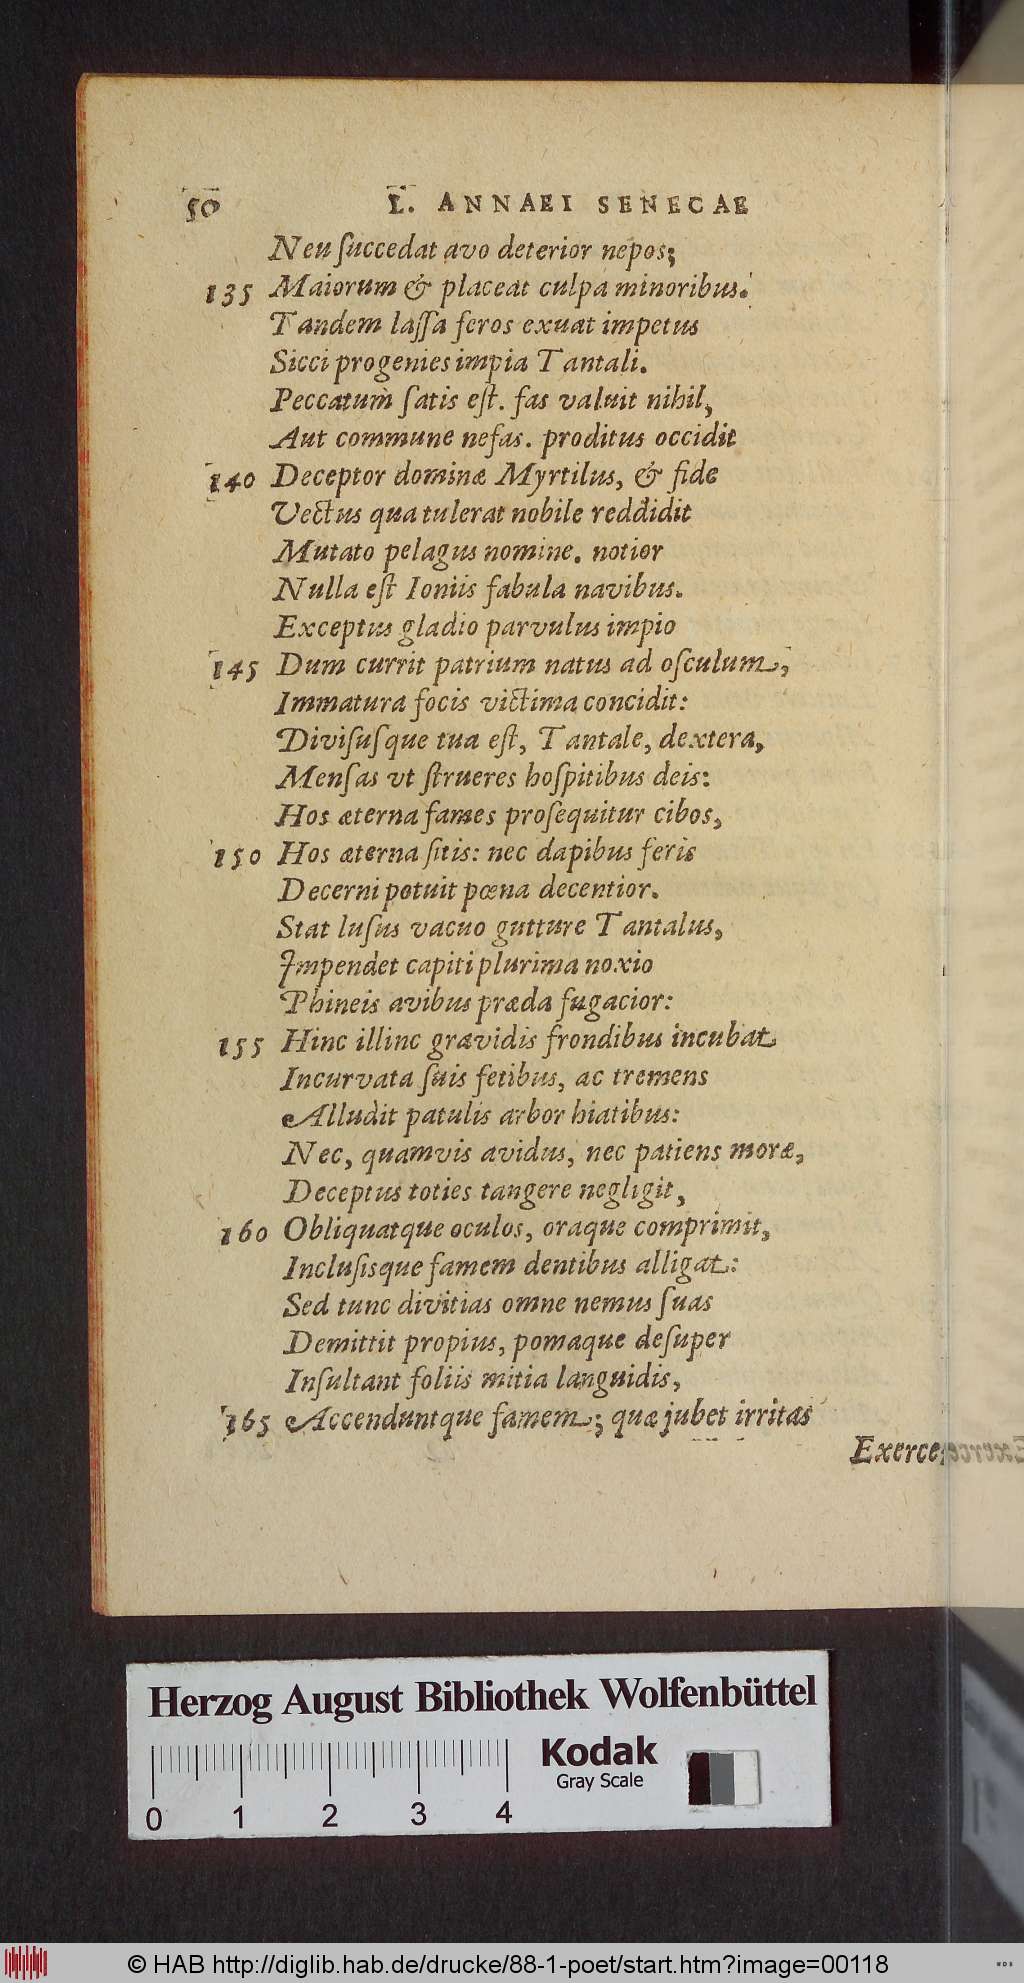 50 L. ANNAEI SENECAE
Neu ſuccedat avo deterior nepos;
135 Maiorum & placeat culpa minoribus.
Tandem laſſa feros exuat impetus
Sicci progenies impia Tantali.
Peccatum ſatis eſt. fas valuit nihil,
Aut commune nefas. proditus occidit
140 Deceptor dominæ Myrtilus, & fide
Vectus qua tulerat nobile reddidit
Mutato pelagus nomine. notior
Nulla eſt Ioniis fabula navibus.
Exceptus gladio parvulus impio
145 Dum currit patrium natus ad oſculum,
Immatura focis victima concidit:
Diviſuſque tua eſt, Tantale, dextera,
Menſas vt ſtrueres hoſpitibus deis:
Hos æterna fames proſequitur cibos,
150 Hos æterna ſitis: nec dapibus feris
Decerni potuit pœna decentior.
Stat luſus vacuo gutture Tantalus,
Impendet capiti plurima noxio
Phineis avibus præda fugacior:
155 Hinc illinc grævidis frondibus incubat
Incurvata ſuis fetibus, ac tremens
Alludit patulis arbor hiatibus:
Nec, quamvis avidus, nec patiens moræ,
Deceptus toties tangere negligit,
160 Obliquatque oculos, oraque comprimit,
Incluſisque famem dentibus alligat:
Sed tunc divitias omne nemus ſuas
Demittit propius, pomaque deſuper
Inſultant foliis mitia languidis,
165 Accenduntque famem; quæ jubet irritas
Exerce
Herzog August Bibliothek Wolfenbüttel
Kodak
Gray Scale
0 1 2 3 4
© HAB http://diglib.hab.de/drucke/88-1-poet/start.htm?image=00118